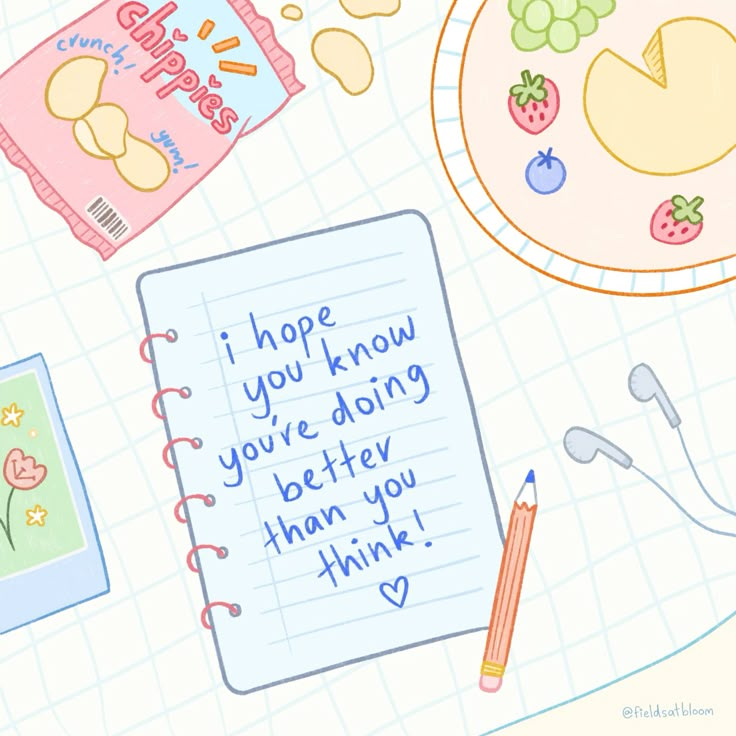 chippies
crunch!
yum!
i hope
you know
you're doing
better
than you
think!
@fieldsatbloom